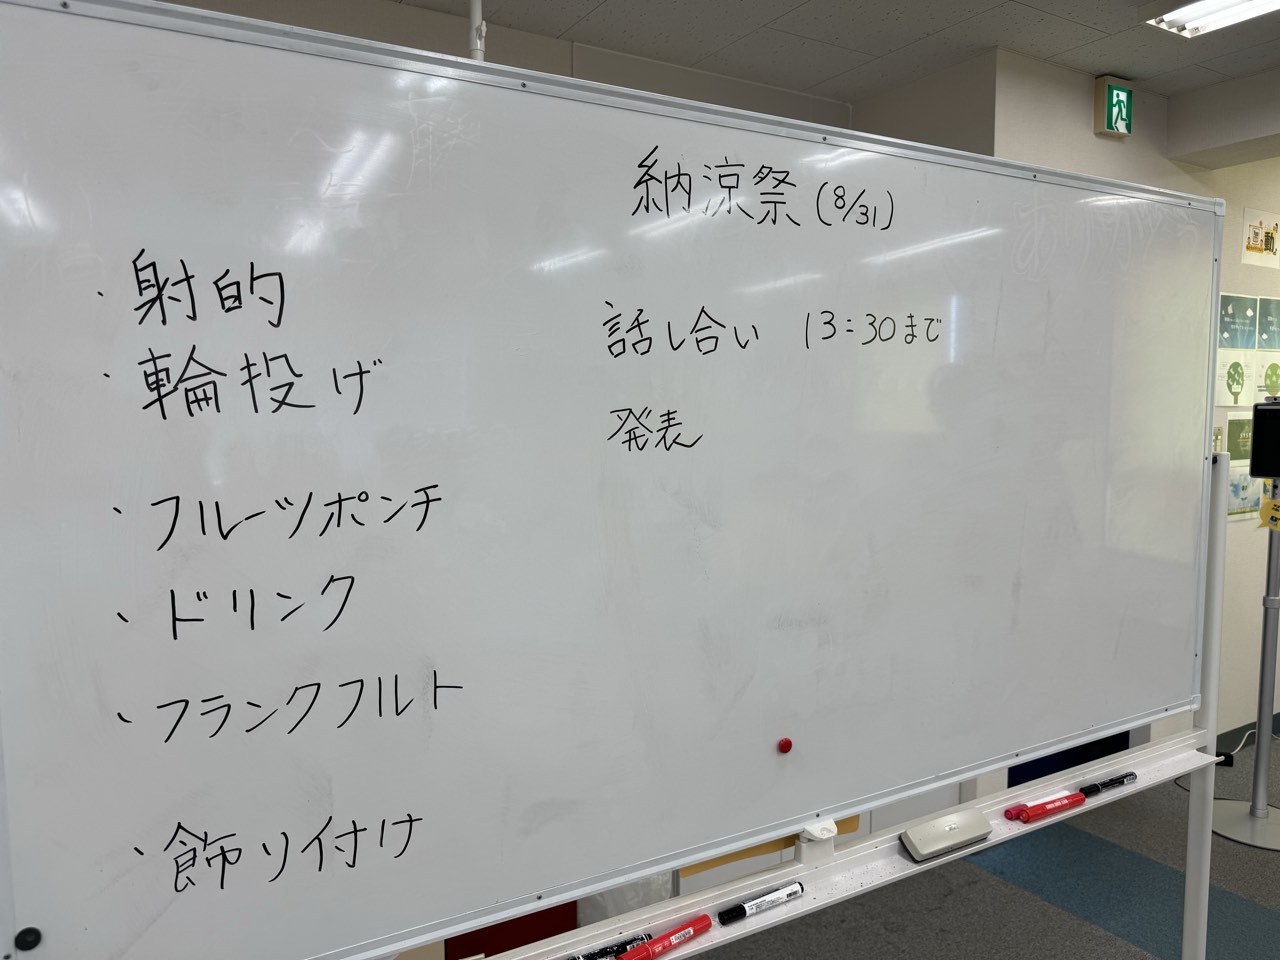 納涼祭(8/31)
話し合い 13:30まで
発表
・射的
・輪投げ
・フルーツポンチ
・ドリンク
・フランクフルト
・飾り付け